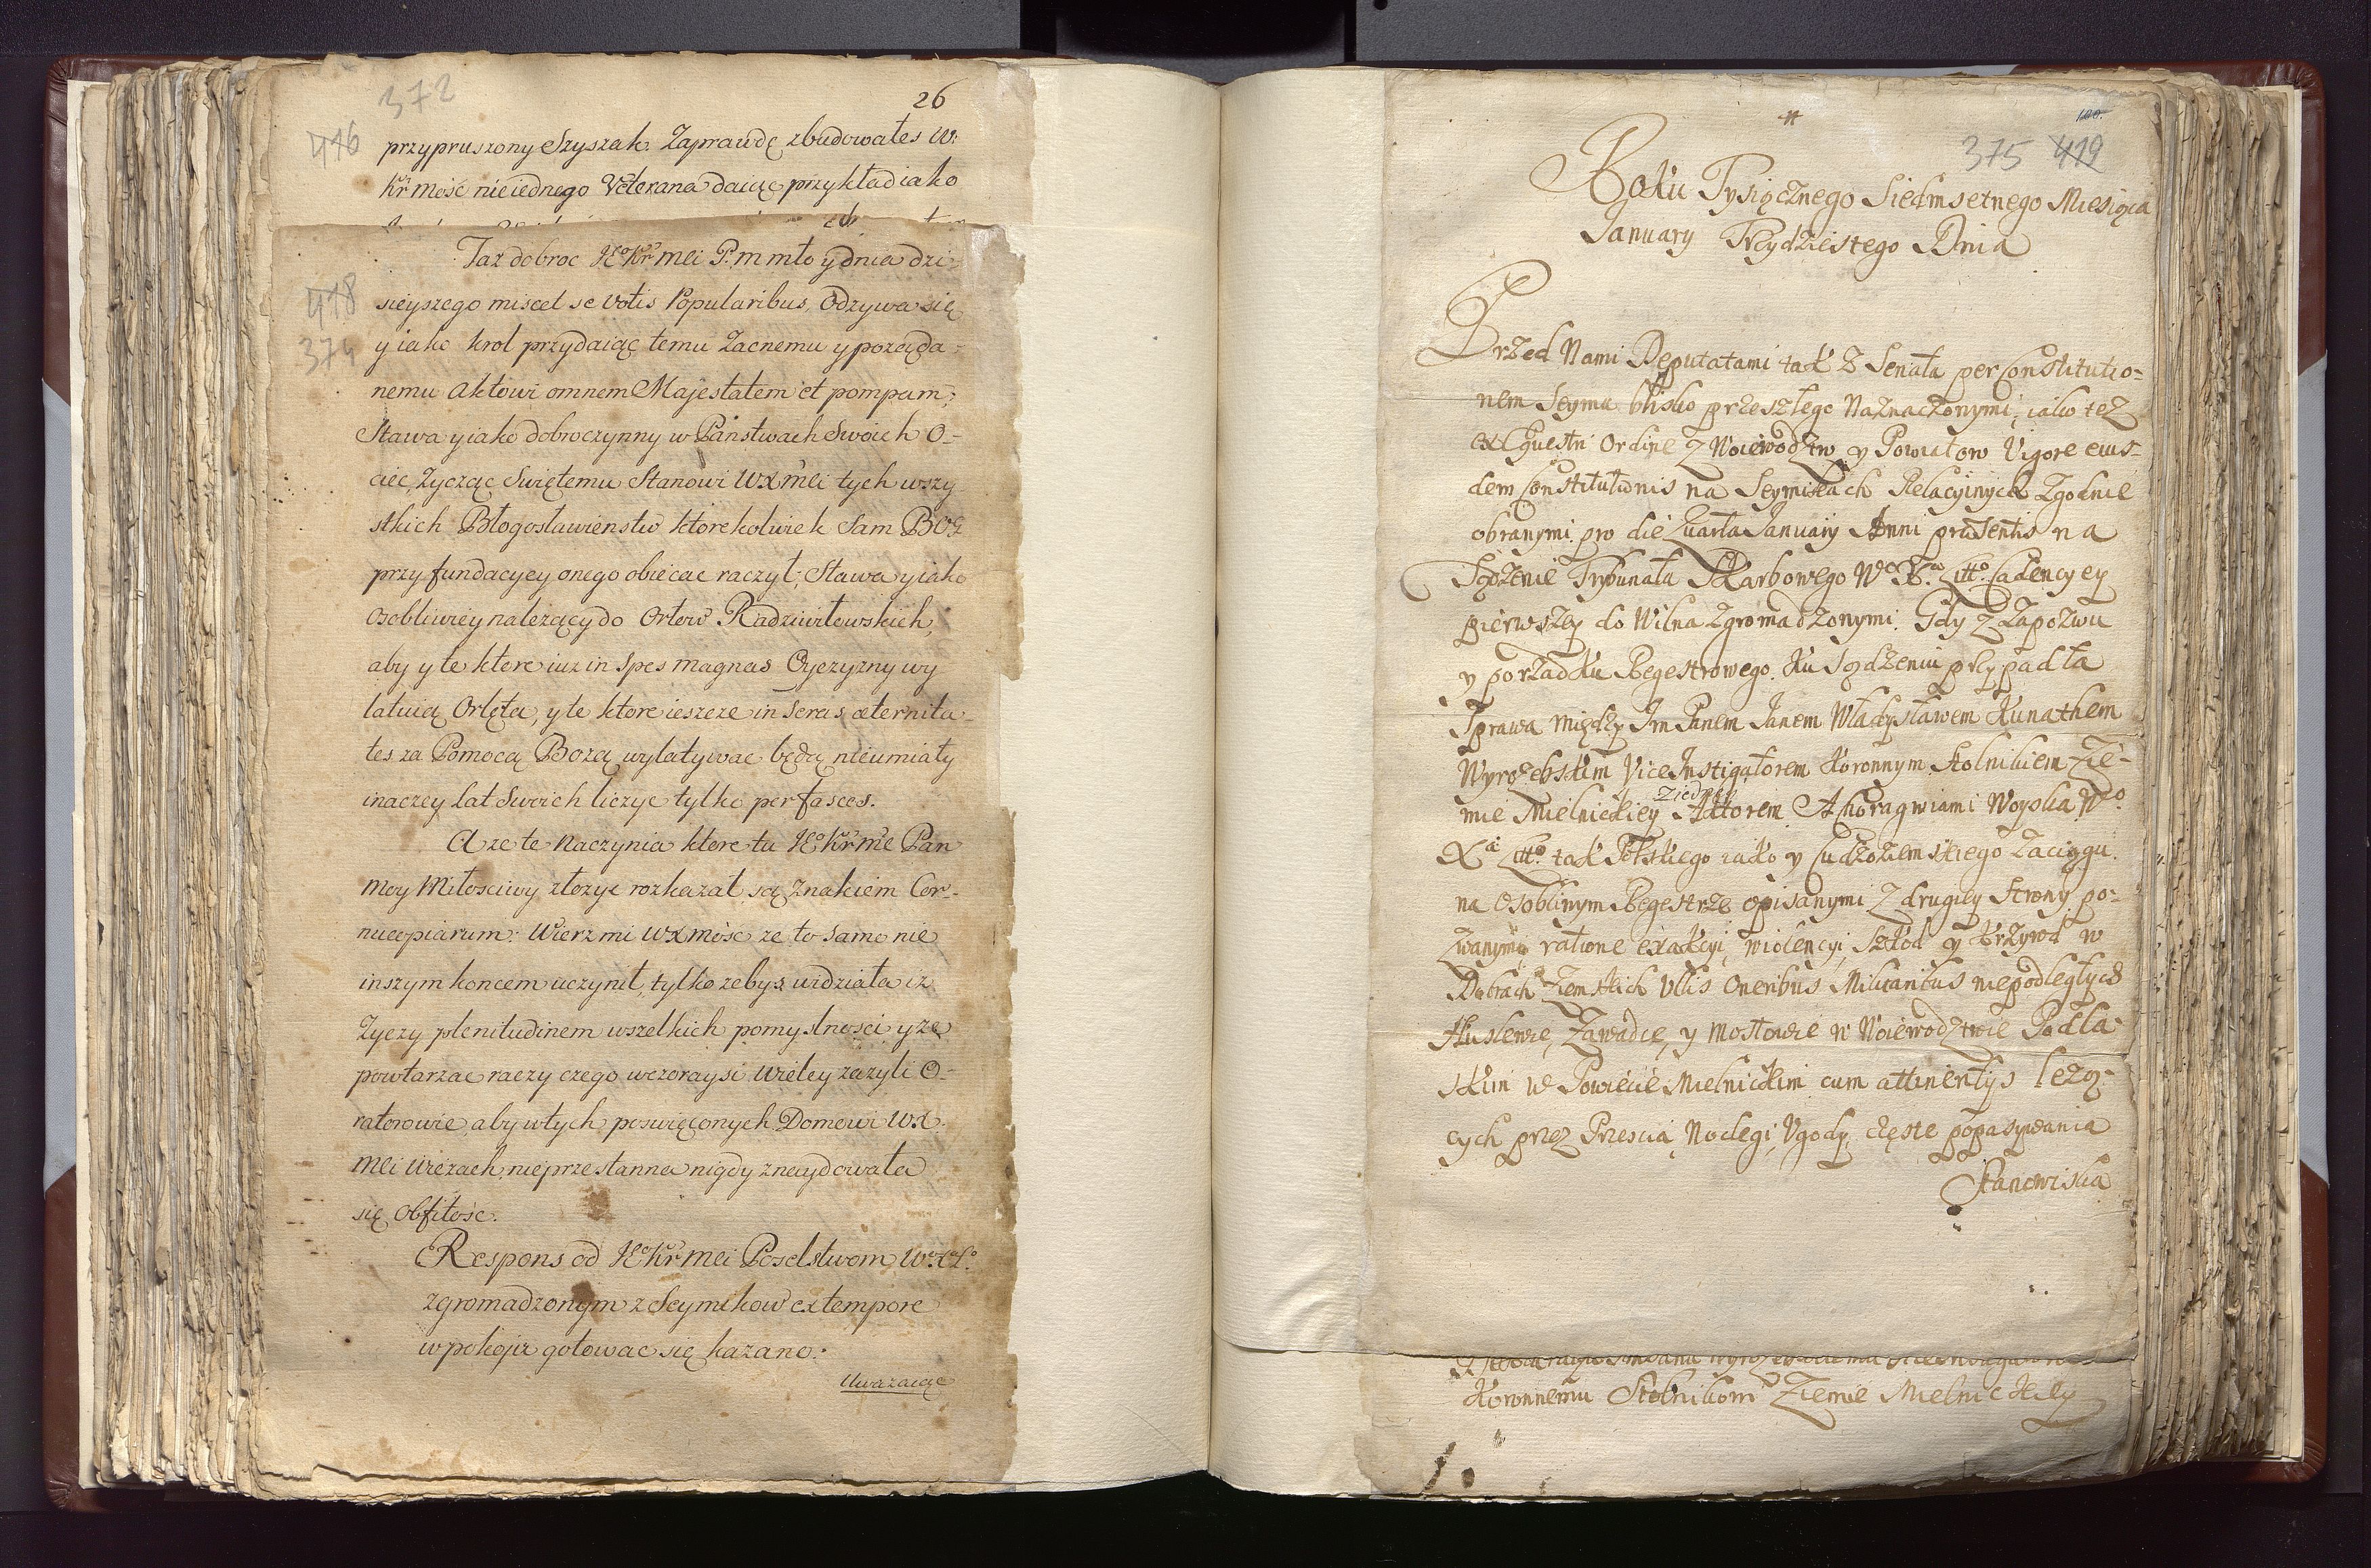 372
26
416
przypruszony Szyszak. Zaprawdę zbudowałes W:
Kr mość nieiednego Veterana daiąc przykład iako
Taż dobroc JKoKr mći P. m mło y dnia dzi-
418
sieyszego miscet se votis Popularibus, Odzywa się
374
y iako krol przydaiąc temu Zacnemu y poząda-
nemu aktowi omnem Majestatem et pompam;
Stawa y iako dobroczynny w Państwach Swoich O-
ciec, Zycząc Swiętemu Stanowi WXmći tych wszy
stkich Błogosławienstw ktorekolwiek Sam BOG
przy fundacyey onego obiecac raczył; Stawa y iako
osobliwiey należący do Orłow Radziwiłowskich,
aby y te ktore iuz in spes magnas Oyczyzny wy
latuią Orlęta, y te ktore ieszcze in seras æternita-
tes za Pomocą Bozą wylatywac będą nieumiały
inaczey lat Swoich liczyc tylko per fasces.
A ze te Naczynia ktore tu JKoKr mć Pan
moy Miłosciwy złozyc rozkazał są Znakiem Cor-
nucopiarum: Wierz mi WXmość ze to samo nie
inszym koncem uczynił, tylko zebys widziała iz
Zyczy plenitudinem wszelkich pomyslnosci y ze
powtarzac raczy czego wczoraysi Wieley zazyli O-
ratorowie, aby w tych poswięconych Domowi WX.
mći Wiezach, nieprzestanna nigdy znaydowała
się Obfitosc.
Respons od JKoKr mći Poselstwom W. X. L.
zgromadzonym z Seymikow ex tempore
w pokoju gotowac się kazano.
Uwazaiąc
120.
375 419
Roku Tysiącznego Siedmsetnego Miesiąca
January Trzydziestego Dnia
Przed Nami Deputatami tak z Senatu per Constitutio-
nem Seymu blisko przeszłego Naznaczonymi, iako tez
ex Equestri Ordine z Woiewodztw y Powiatow Vigore eius-
dem Constitutionis na Seymikach Relacyinych Zgodnie
obranymi pro die Quarta January Anni præsentis na
Sądzenie Trybunału Skarbowego Wo Xa Litto Cadencyey
pierwszey do Wilna Zgromadzonymi. Gdy z Zapozwu
y porządku Regestrowego Ku Sądzeniu przypadła
Sprawa między Jm Panem Janem Władysławem Kunathem
Wyrozebskim Vice Instigatorem Koronnym Stolnikiem Zie-
z iedney
mie Mielnickiey Aktorem A Chorągwiami Woyska Wo
Xa Litto tak Polskiego iako y Cudzoziemskiego Zaciągu
na Osobliwym Regestrze opisanymi z drugiey Strony po-
zwanymi ratione exakcyi, wiolencyi, Szkod y krzywd w
Dobrach Ziemskich Vllis Oneribus Militaribus niepodległych
Huslewie, Zawadce, y Mostowie w Woiewodztwie Podla-
skim w Powiecie Mielnickim cum attinentys leżą-
cych przez Przescia, Noclegi, Ugody, częste popasywania
Stanowiska
Koronnemu Stolnikowi Ziemie Mielnickiey